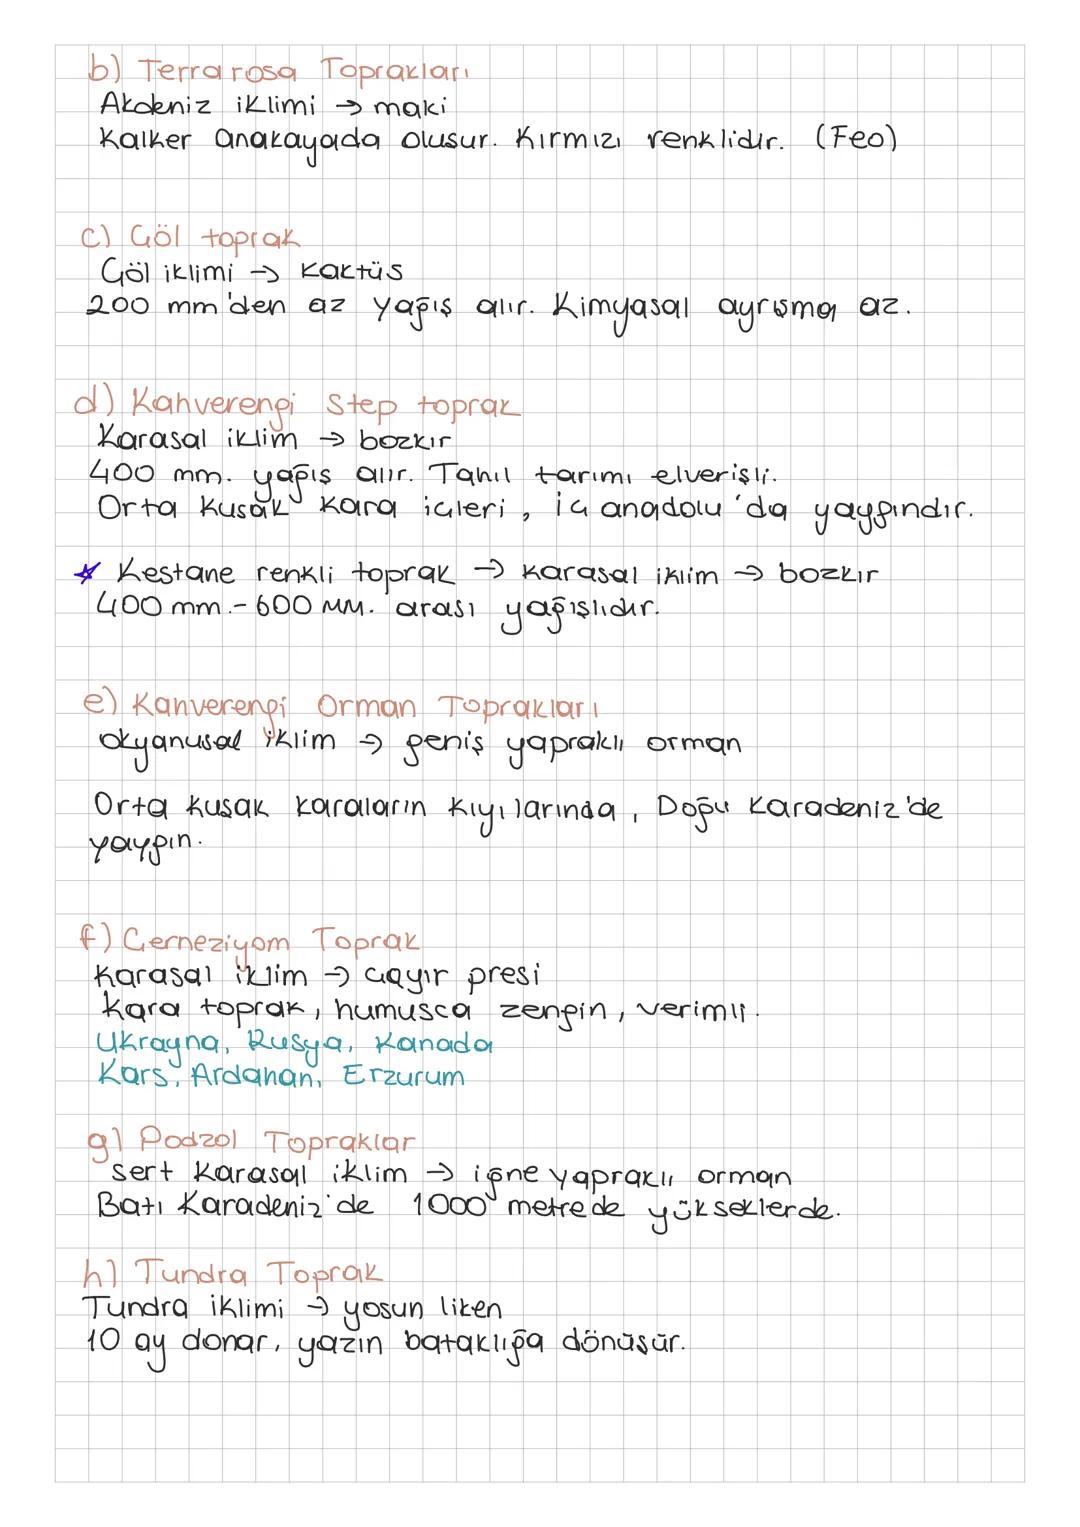 b) Terra rosa Toprakları
Akdeniz iklimi → maki
Kalker anakayada oluşur. Kırmızı renklidir. (Feo)
c) Göl toprak
Göl iklimi → kaktüs
200 mm'den az yağış alır. Kimyasal ayrışma az.
d) Kahverengi Step toprak
Karasal iklim → bozkır
400 mm. yağış alır. Tahıl tarımı elverişli.
Orta kuşak kara içleri, iç anadolu'da yaygındır.
* Kestane renkli toprak → karasal iklim → bozkır
400 mm.- 600 MM. arası yağışlıdır.
e) Kahverengi Orman Toprakları
okyanusal iklim → geniş yapraklı orman
Orta kuşak karaların kıyılarında, Doğu Karadeniz'de
yaygın.
f) Çerneziyom Toprak
Karasal iklim → çayır presi
Kara toprak, humusca zengin, verimli.
Ukrayna, Rusya, Kanada
Kars, Ardahan, Erzurum
g) Podzol Topraklar
sert Karasal iklim → iğne yapraklı orman
Batı Karadeniz'de 1000 metrede yükseklerde.
h) Tundra Toprak
Tundra iklimi → yosun liken
10 ay donar, yazın bataklığa dönüşür.